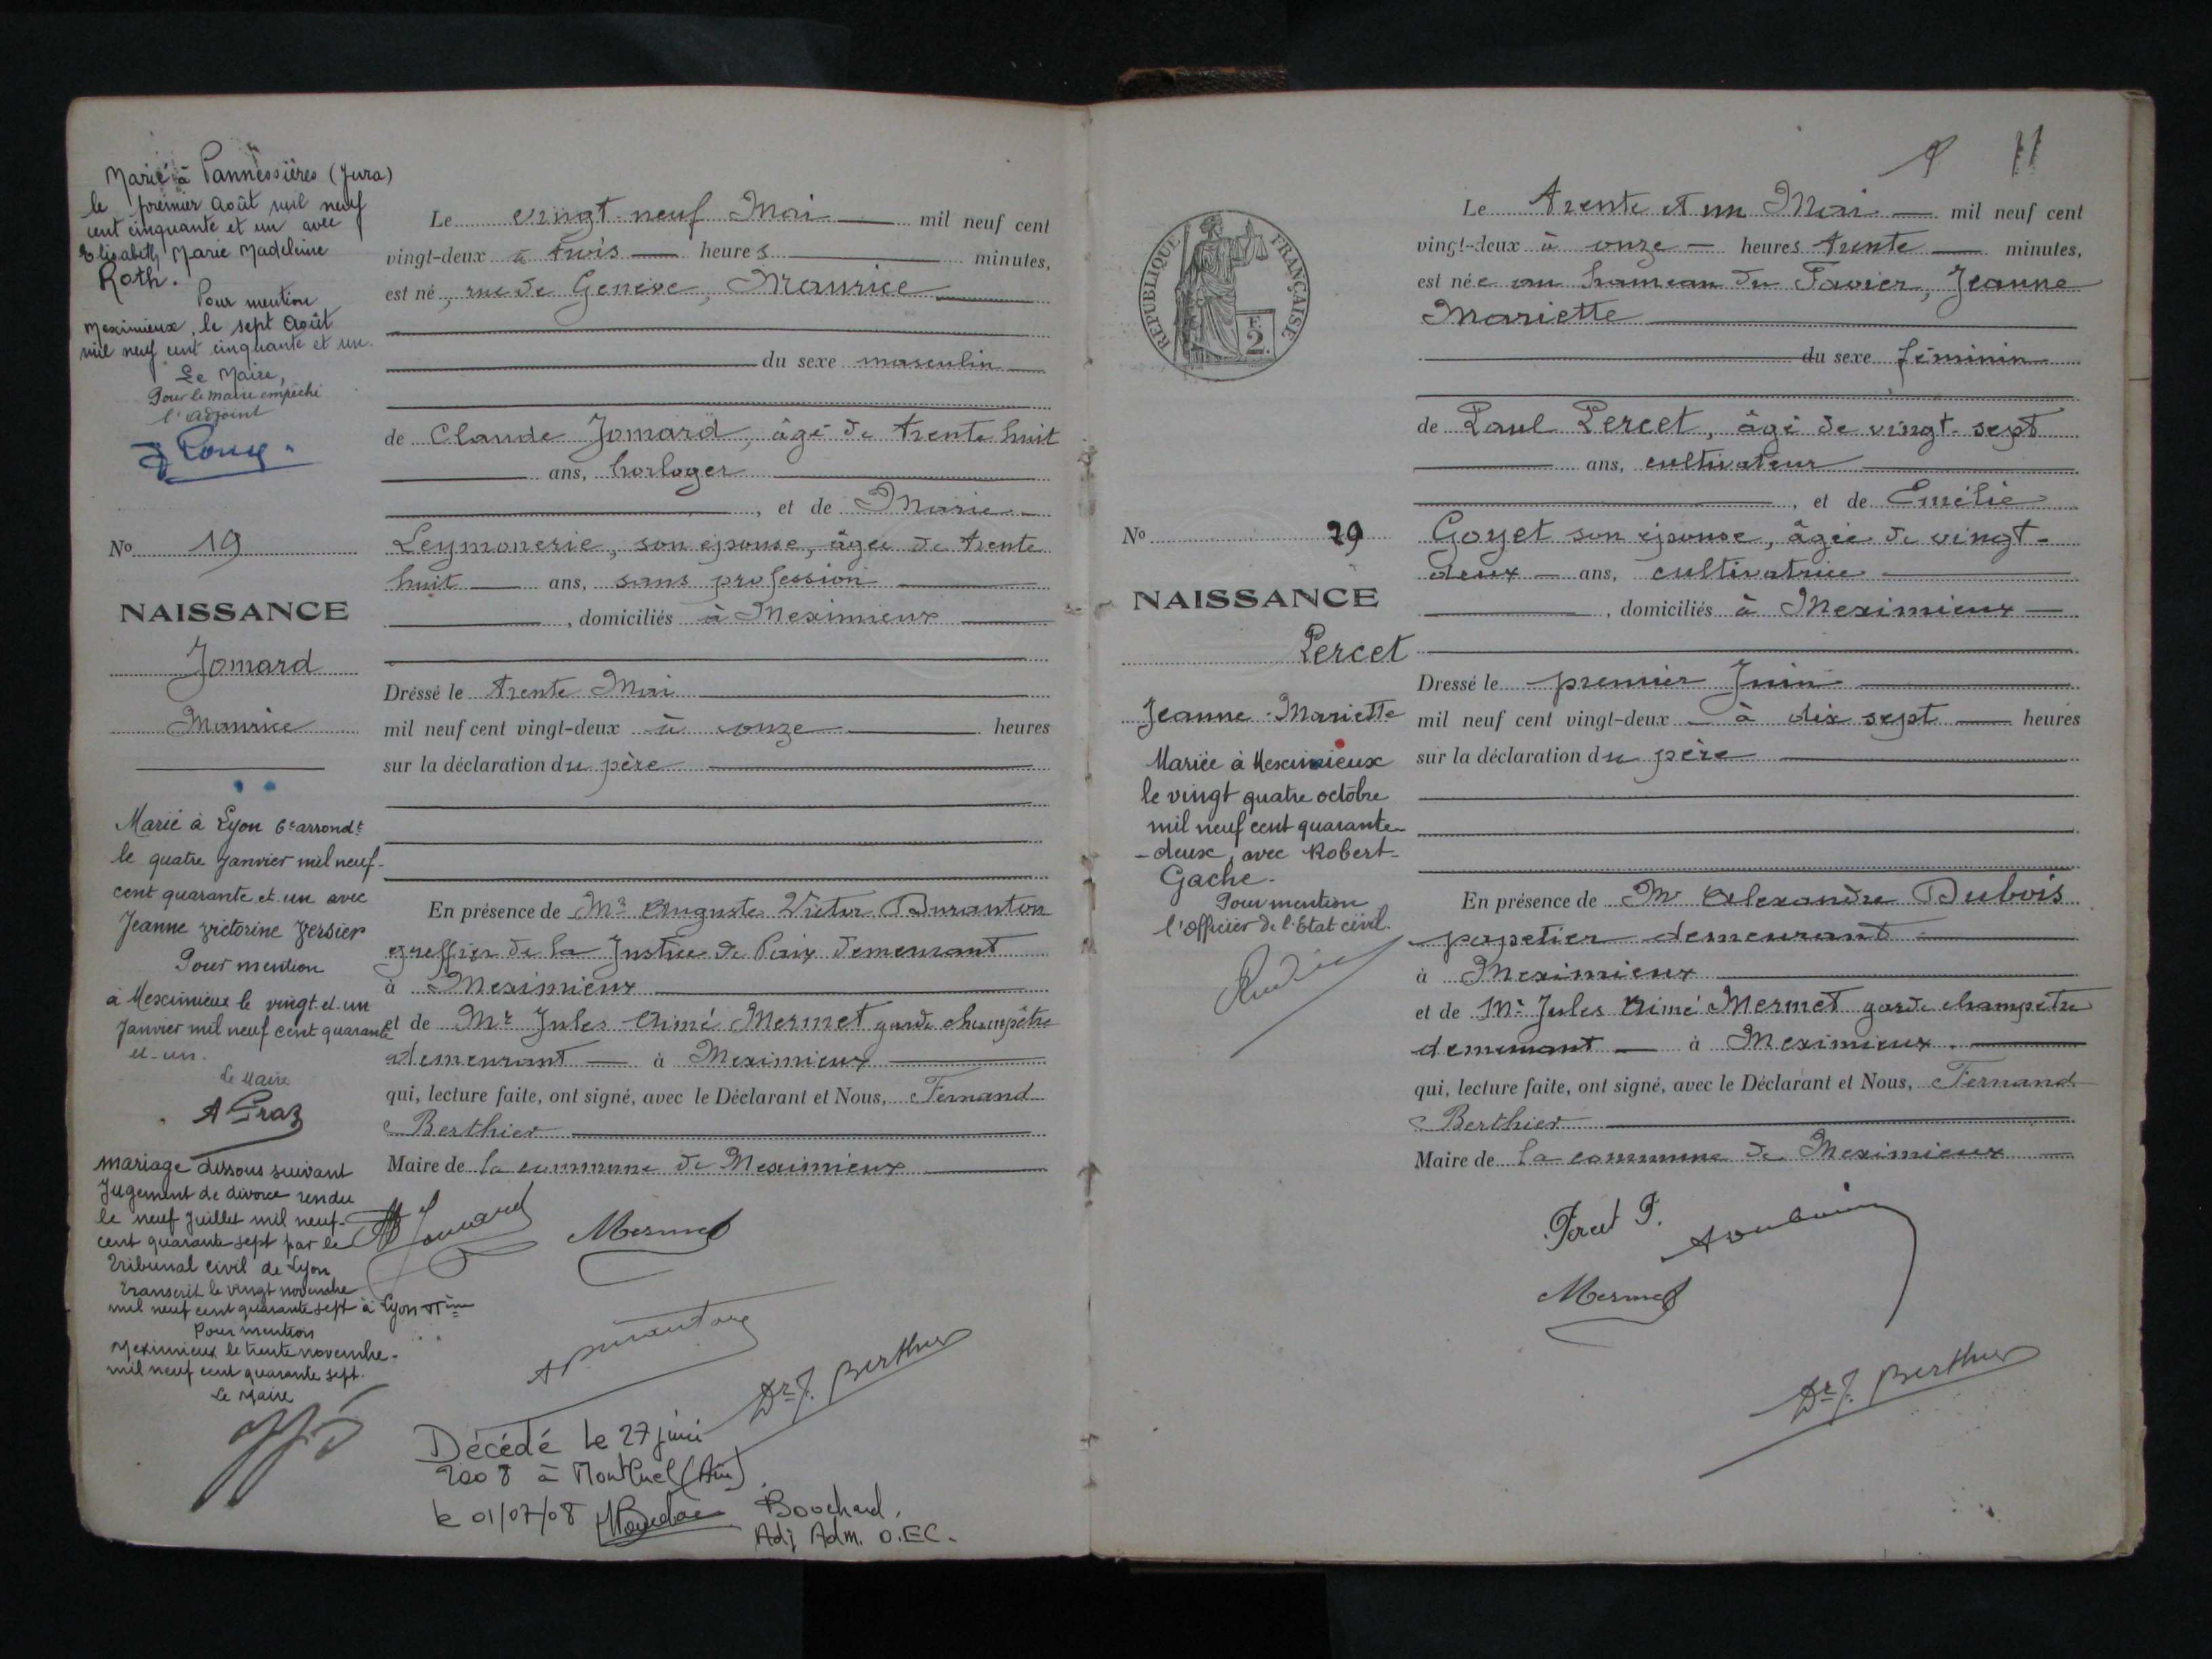 Marié à Pannessières (Jura)
le premier Août mil neuf
cent cinquante et un avec
Elisabeth Marie Madeleine
Roth.
Pour mention
Meximieux, le sept Août
mil neuf cent cinquante et un.
Le Maire,
Pour le maire empêché
l'adjoint
No 19
NAISSANCE
Jomard
Maurice
Marié à Lyon 6e arrondt
le quatre Janvier mil neuf-
cent quarante et un avec
Jeanne Victorine Versier
Pour mention
à Meximieux le vingt et un
Janvier mil neuf cent quarante
et un.
Le Maire
A Praz
mariage dissous suivant
Jugement de divorce rendu
le neuf Juillet mil neuf-
cent quarante sept par le
Tribunal civil de Lyon
Transcrit le vingt novembre
mil neuf cent quarante sept à Lyon
Pour mention
Meximieux le trente novembre-
mil neuf cent quarante sept.
Le Maire
Le vingt neuf Mai mil neuf cent
vingt-deux à trois heures minutes,
est né, rue de Genève, Maurice
du sexe masculin
de Claude Jomard, âgé de trente huit
ans, horloger
, et de Marie
Leymonerie, son épouse, âgée de trente
huit ans, sans profession
, domiciliés à Meximieux
Dressé le trente Mai
mil neuf cent vingt-deux à onze heures
sur la déclaration du père
En présence de Mr Auguste Victor Buranton
greffier de la Justice de Paix demeurant
à Meximieux
et de Mr Jules Aimé Mermet garde champêtre
demeurant à Meximieux
qui, lecture faite, ont signé, avec le Déclarant et Nous, Fernand
Berthier
Maire de la commune de Meximieux
Jomard
Mermet
Dr J. Berthier
Décédé le 27 juin
2008 à Montluel (Ain)
le 01/07/08
Bouchard.
Adj Adm. O.EC.
11
RÉPUBLIQUE FRANÇAISE
F.
2.
No 29
NAISSANCE
Percet
Jeanne Mariette
Mariée à Meximieux
le vingt quatre octobre
mil neuf cent quarante-
-deux, avec Robert
Gache.
Pour mention
l'Officier de l'Etat civil.
Le trente et un Mai mil neuf cent
vingt-deux à onze heures trente minutes,
est née au hameau du Favier, Jeanne
Mariette
du sexe féminin
de Paul Percet, âgé de vingt-sept
ans, cultivateur
, et de Emélie
Goyet son épouse, âgée de vingt-
deux ans, cultivatrice
, domiciliés à Meximieux
Dressé le premier Juin
mil neuf cent vingt-deux à dix sept heures
sur la déclaration du père
En présence de Mr Alexandre Dubois
papetier demeurant
à Meximieux
et de Mr Jules Aimé Mermet garde champêtre
demeurant à Meximieux.
qui, lecture faite, ont signé, avec le Déclarant et Nous, Fernand
Berthier
Maire de la commune de Meximieux
Percet P.
Mermet
Dr J. Berthier